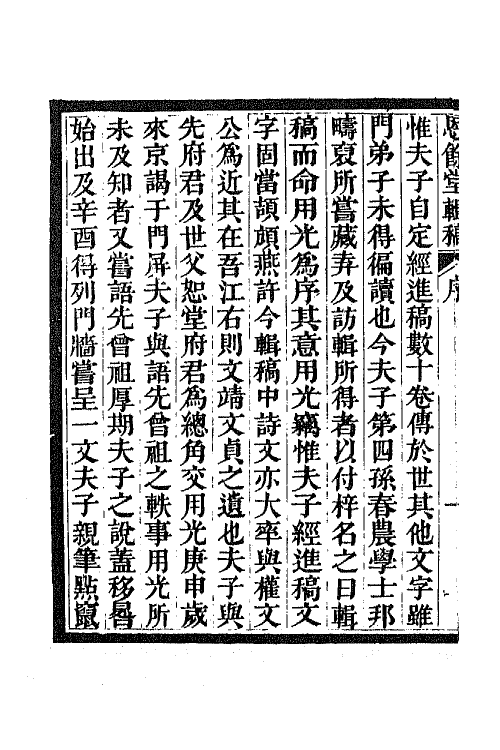 恩餘堂輯稿　序　一
惟夫子自定經進稿數十卷傳於世其他文字雖
門弟子未得徧讀也今夫子第四孫春農學士邦
疇裒所嘗藏弆及訪輯所得者以付梓名之曰輯
稿而命用光爲序其意用光竊惟夫子經進稿文
字固當頡頏燕許今輯稿中詩文亦大率與權文
公爲近其在吾江右則文靖文貞之遺也夫子與
先府君及世父恕堂府君爲總角交用光庚申歲
來京謁于門屏夫子與語先曾祖之軼事用光所
未及知者又嘗語先曾祖厚期夫子之說蓋移晷
始出及辛酉得列門牆嘗呈一文夫子親筆點竄